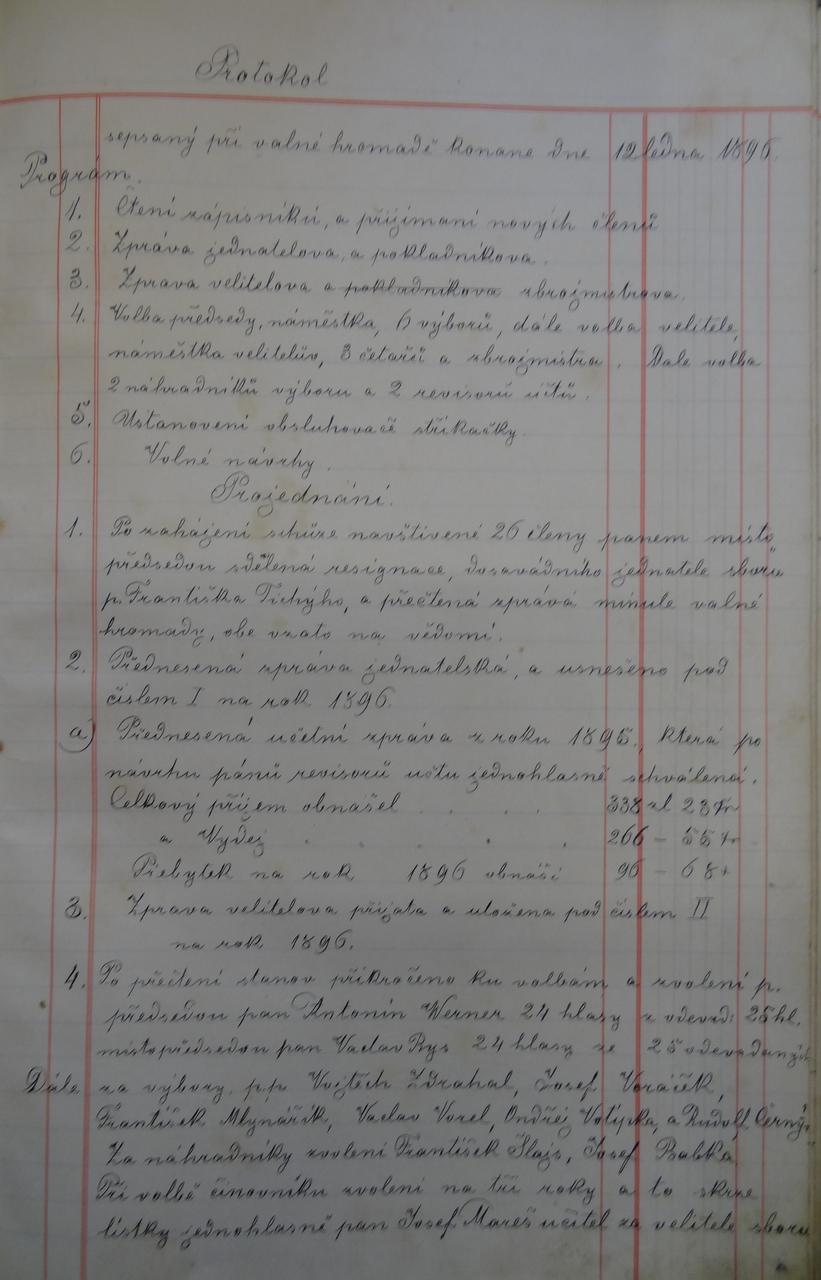 Protokol
sepsaný při valné hromadě konane dne 12 ledna 1896.
Prográm.
1. Čtení zápisníků, a přijímaní nových členů
2. Zpráva jednatelova, a pokladníkova.
3. Zprava velitelova a pokladníkova zbrojmistrova.
4. Volba předsedy, náměstka, 6 výborů, dále volba velitele,
náměstka velitelův, 3 četařů a zbrojmistra. Dale volba
2 náhradníků výboru a 2 revisorů účtů.
5. Ustanovení obsluhovačě stříkačky.
6. Volné návrhy.
Projednání.
1. Po zahájení schůze navštivené 26 členy panem místo„
předsedou sdělená resignace, dosavádního jednatele sboru
p. Františka Tichýho, a přečtená zprává minule valné
hromady, obe vzato na vědomí.
2. Přednesená zpráva jednatelská, a usnešeno pod
číslem I na rok 1896.
a) Přednesená učetní zpráva z roku 1895., která po
návrhu pánů revisorů učtu jednohlasně schválená.
Celkový příjem obnášel . . . . 338 zl 23 kr
a Vydej . . . . 266 — 55 kr
Přebytek na rok 1896 obnáší 96 — 68
3. Zprava velitelova přijata a uložena pod číslem II
na rok 1896.
4. Po přečtení stanov přikročeno ku volbám a zvolení p.
předsedou pan Antonín Werner 24 hlasy z odevzd: 25 hl.
místopředsedou pan Vaclav Rys 24 hlasy ze 25 odevzdaných
Dále za výbory. p.p. Vojtěch Zdrahal, Josef Voráček,
František Mlynářík, Vaclav Vorel, Ondřej Votípka, a Rudolf Černý„
Za náhradníky zvolení František Šlajs, Josef Babka
Při volbě činovníku zvolení na tři roky a to skrze
lístky jednohlasně pan Josef Mareš učitel za velitele sboru